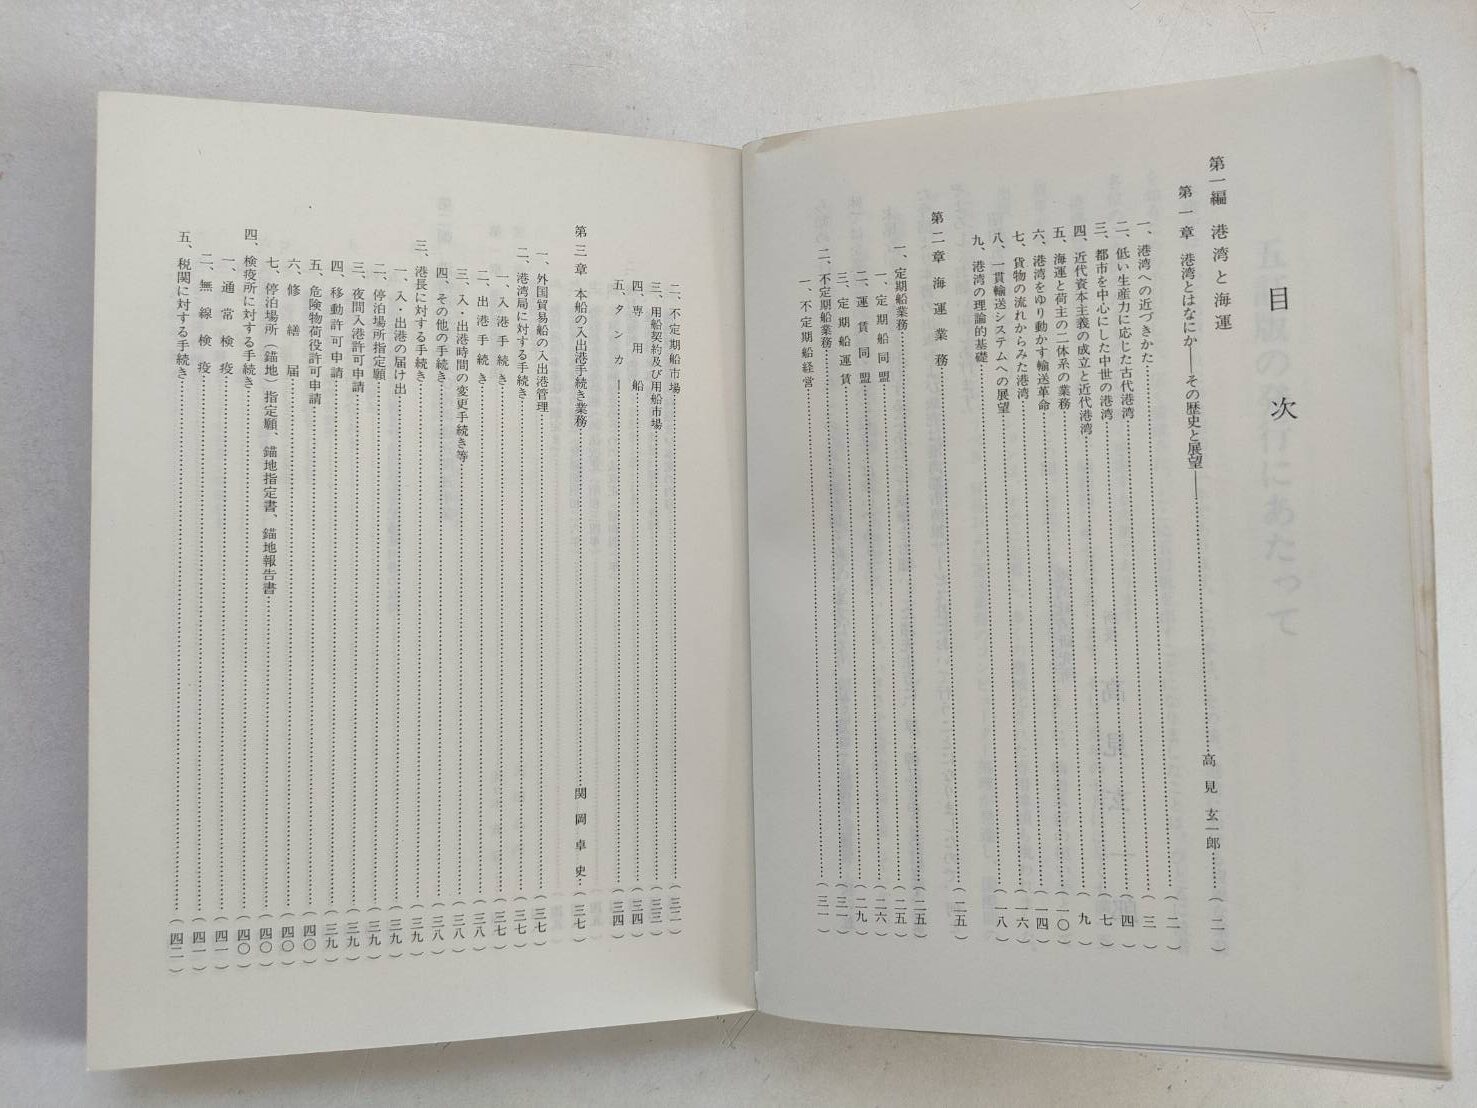 目次
第一編 港湾と海運
第一章 港湾とはなにか――その歴史と展望――……高見玄一郎……(二)
一、港湾への近づきかた……(二)
二、低い生産力に応じた古代港湾……(三)
三、都市を中心にした中世の港湾……(四)
四、近代資本主義の成立と近代港湾……(七)
五、海運と荷主の二体系の業務……(九)
六、港湾をゆり動かす輸送革命……(一〇)
七、貨物の流れからみた港湾……(一四)
八、一貫輸送システムへの展望……(一六)
九、港湾の理論的基礎……(一八)
第二章 海運業務……(二五)
一、定期船業務……(二五)
一、定期船同盟……(二五)
二、運賃同盟……(二六)
三、定期船運賃……(二九)
二、不定期船業務……(三一)
一、不定期船経営……(三一)
二、不定期船市場……(三二)
三、用船契約及び用船市場……(三三)
四、専用船……(三四)
五、タンカー……(三四)
第三章 本船の入出港手続き業務……関岡卓史……(三七)
一、外国貿易船の入出港管理……(三七)
二、港湾局に対する手続き……(三七)
一、入港手続き……(三七)
二、出港手続き……(三八)
三、入・出港時間の変更手続き等……(三八)
四、その他の手続き……(三八)
三、港長に対する手続き……(三九)
一、入・出港の届け出……(三九)
二、停泊場所指定願……(三九)
三、夜間入港許可申請……(三九)
四、移動許可申請……(三九)
五、危険物荷役許可申請……(四〇)
六、修繕届……(四〇)
七、停泊場所(錨地)指定願、錨地指定書、錨地報告書……(四〇)
四、検疫所に対する手続き……(四〇)
一、通常検疫……(四一)
二、無線検疫……(四一)
五、税関に対する手続き……(四二)